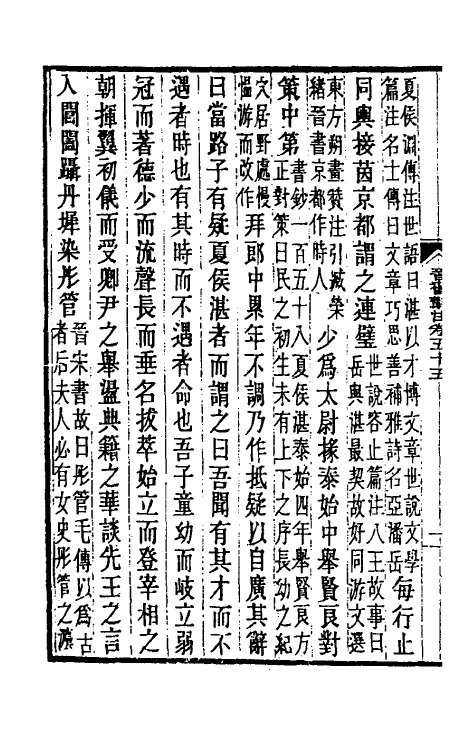 夏侯淵傳注世語曰湛以才博文章世說文學
篇注名士傳曰文章巧思善補雅詩名亞潘岳
每行止
同輿接茵京都謂之連璧
世說容止篇注八王故事曰
岳與湛最契故好同游文選
東方朔畫贊注引臧榮
緒晉書京都作時人
少爲太尉掾泰始中舉賢良對
策中第
書鈔一百五十八夏侯湛泰始四年舉賢良方
正對策曰民之初生未有上下之序長幼之紀
穴居野處慢
游而改作
拜郎中累年不調乃作抵疑以自廣其辭
曰當路子有疑夏侯湛者而謂之曰吾聞有其才而不
遇者時也有其時而不遇者命也吾子童幼而岐立弱
冠而著德少而流聲長而垂名拔萃始立而登宰相之
朝揮翼初儀而受卿尹之舉盪典籍之華談先王之言
入閶闔躡丹墀染彤管
晉宋書故曰彤管毛傳以爲古
者后夫人必有女史彤管之灋
晉書斠注卷五十五